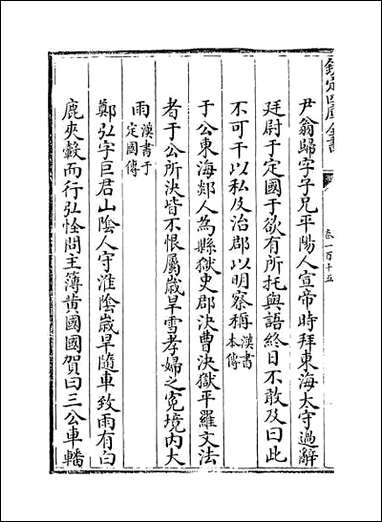 欽定四庫全書
卷一百十五
尹翁歸字子兄平陽人宣帝時拜東海太守過辭
廷尉于定國于欲有所托與語終日不敢及曰此
不可干以私及治郡以明察稱漢書本傳
于公東海郯人為縣獄史郡決曹決獄平羅文法
者于公所決皆不恨屬歲旱雪孝婦之冤境內大
雨漢書于定國傳
鄭弘字巨君山陰人守淮陰歲旱隨車致雨有白
鹿夾轂而行弘怪問主簿黄國國賀曰三公車轓